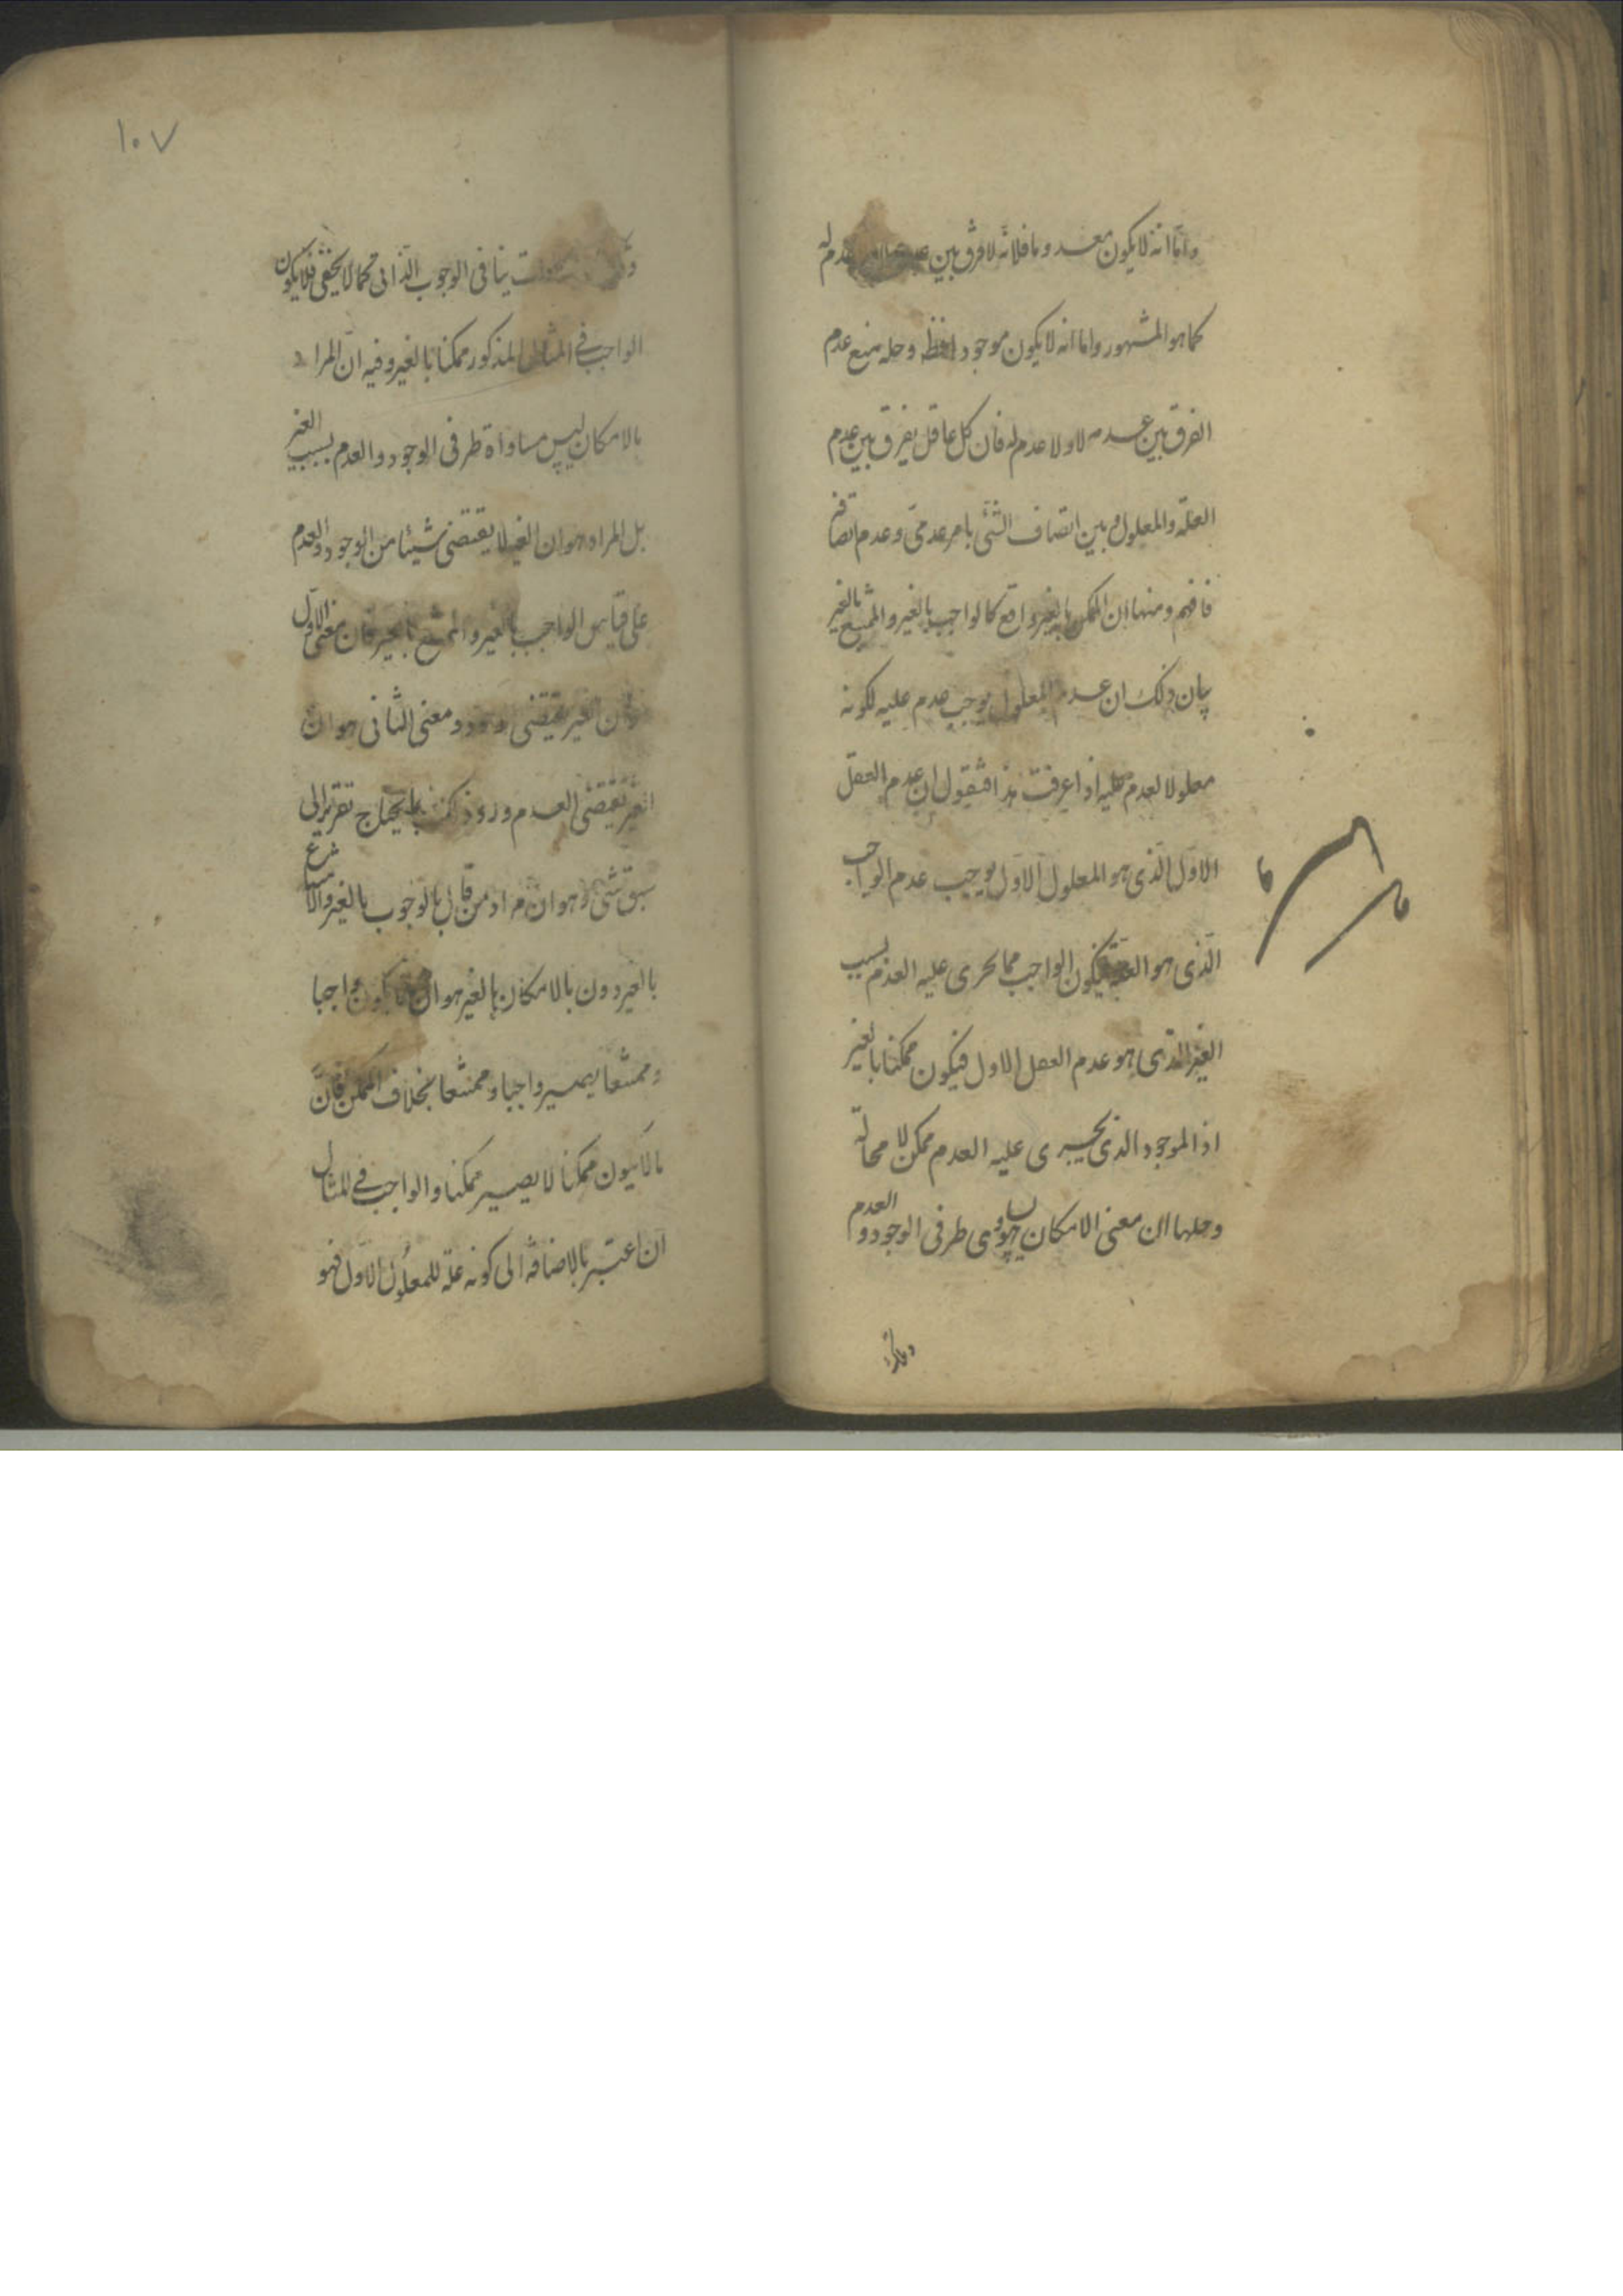 واما انه لا يكون معدوما فلانه لا فرق بين عدم له
كما هو المشهور واما انه لا يكون موجودا فظ وحله منع عدم
الفرق بين عدمه لا ولا عدم له فان كل عاقل يفرق بين عدم
العلة والمعلول وبين اتصاف الشئ بامر عدمى وعدم اتصافه
فافهم ومنها ان الممكن بالغير واقع كالواجب بالغير والممتنع بالغير
بيان ذلك ان عدم المعلول يوجب عدم عليه لكونه
معلولا لعدم عليه اذا عرفت هذا فنقول ان عدم العقل
الاول الذى هو المعلول الاول يوجب عدم الواجب
الذى هو العلة فيكون الواجب مما يجرى عليه العدم بسبب
الغير الذى هو عدم العقل الاول فيكون ممكنا بالغير
اذ الموجود الذى يجرى عليه العدم ممكن لا محالة
وحلها ان معنى الامكان هو تساوى طرفى الوجود والعدم
١٠٧
ينافى الوجوب الذاتى كما لا يخفى فلا يكون
الواجب فى المثال المذكور ممكنا بالغير وفيه ان المراد
بالامكان ليس مساواة طرفى الوجود والعدم بسبب الغير
بل المراد هو ان الغير لا يقتضى شيئا من الوجود والعدم
على قياس الواجب بالغير والممتنع بالغير فان معنى الاول
ان الغير يقتضى وجوده ومعنى الثانى هو ان
الغير يقتضى العدم ورد يحتاج تقريره الى
سبق شئ وهو ان مراد من قال بالوجوب بالغير والامتناع
بالغير دون بالامكان بالغير هو ان ما لا يكون واجبا
وممتنعا يصير واجبا وممتنعا بخلاف الممكن فان
ما لا يكون ممكنا لا يصير ممكنا والواجب فى المثال
ان اعتبر بالاضافة الى كونه علة للمعلول الاول فهو